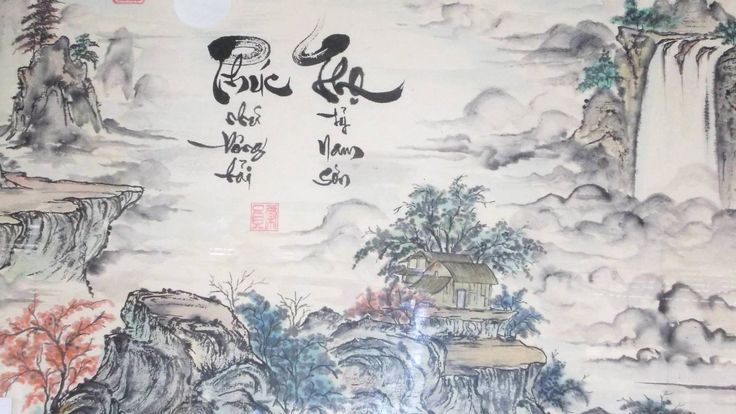 Phúc
như
Đông
hải
Thọ
tỷ
Nam
sơn